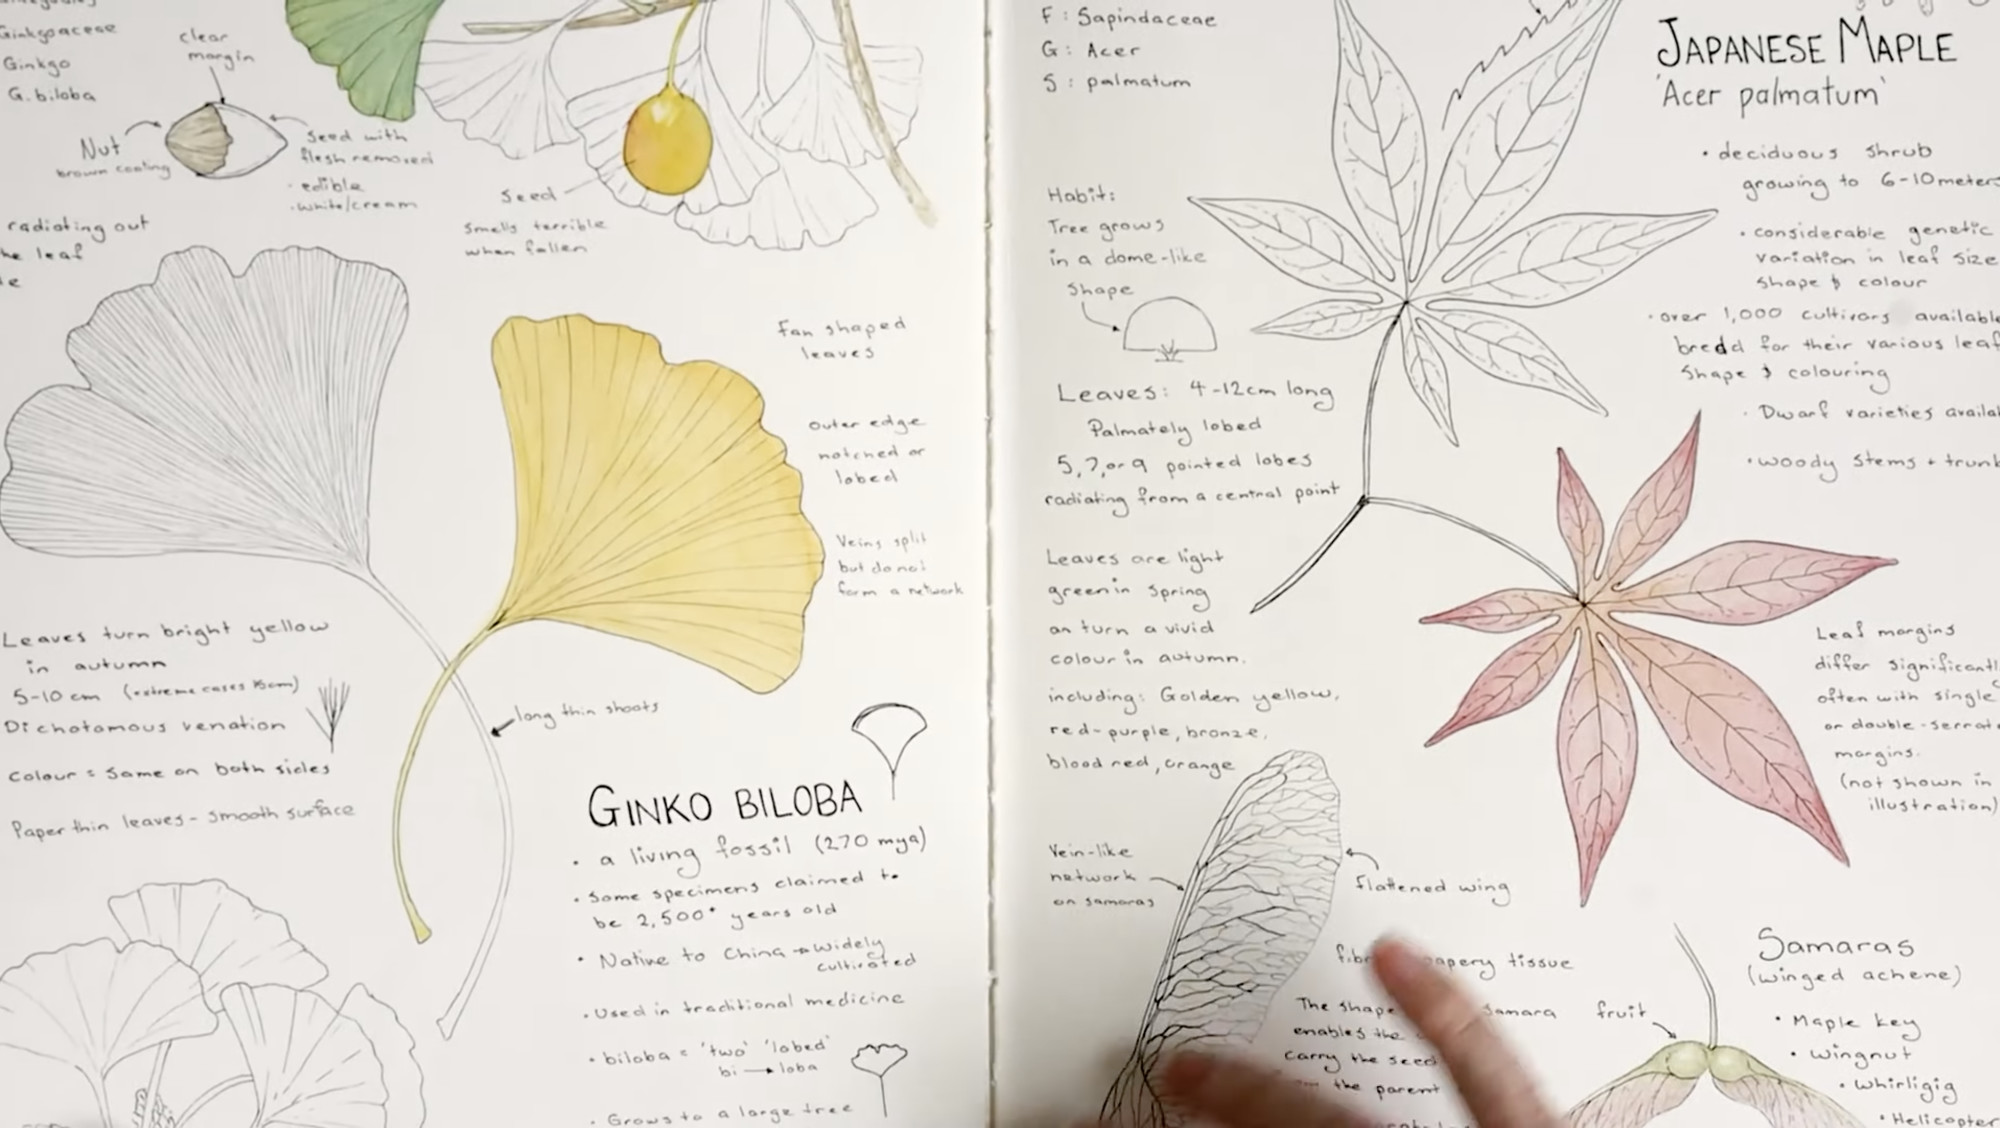 Ginkgoaceae
Ginkgo
G. biloba
clear
margin
Nut
brown coating
Seed with
flesh removed
· edible
· white/cream
Seed
Smells terrible
when fallen
radiating out
he leaf
Fan shaped
leaves
outer edge
notched or
lobed
Veins split
but do not
form a network
Leaves turn bright yellow
in autumn
5-10 cm (extreme cases 15cm)
Dichotomous venation
Colour = Same on both sides
Paper thin leaves - smooth surface
long thin shoots
GINKO BILOBA
· a living fossil (270 mya)
· Some specimens claimed to
be 2,500+ years old
· Native to China → widely
cultivated
· Used in traditional medicine
· biloba = 'two' 'lobed'
bi → loba
· Grows to a large tree
F : Sapindaceae
G : Acer
S : palmatum
JAPANESE MAPLE
'Acer palmatum'
· deciduous shrub
growing to 6-10 meters
· considerable genetic
variation in leaf size
shape & colour
· over 1,000 cultivars available
bredd for their various leaf
shape & colouring
· Dwarf varieties availa
· woody stems + trunk
Habit:
Tree grows
in a dome-like
shape
Leaves: 4-12cm long
Palmately lobed
5,7,or 9 pointed lobes
radiating from a central point
Leaves are light
green in spring
an turn a vivid
colour in autumn.
including: Golden yellow,
red-purple, bronze,
blood red, orange
Leaf margins
differ significantl
often with single
or double-serrat
margins.
(not shown in
illustration)
Vein-like
network
on samaras
flattened wing
papery tissue
The shape samara
enables the
carry the seed
the parent
fruit
Samaras
(winged achene)
· Maple key
· wingnut
· whirligig
· Helicopter